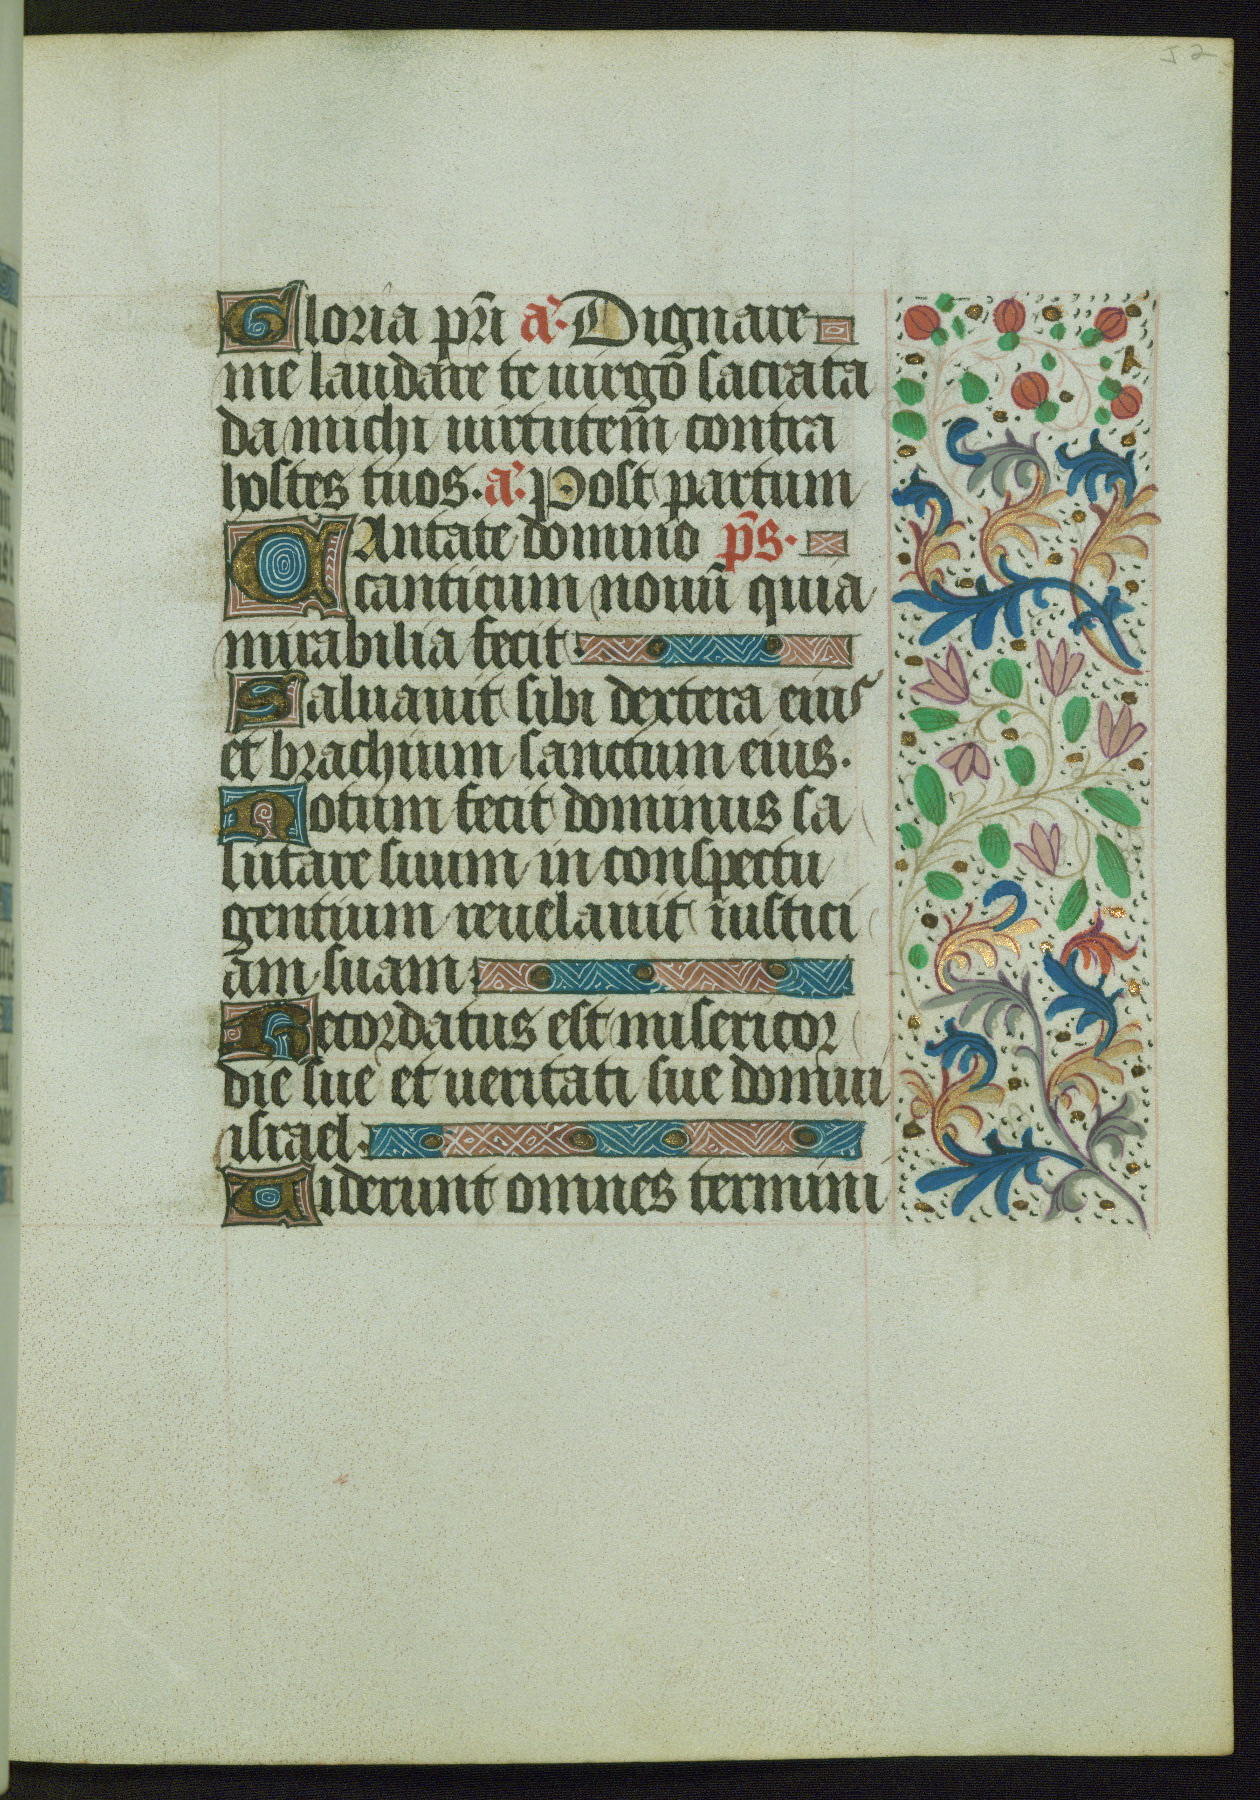 52
Gloria pr̄i a͛· Dignare
me laudare te uirgo̅ sacrata
da michi uirtutem̄ contra
hostes tuos· a͛· Post partum
CAntate domino p̄s·
canticum nouū quia
mirabilia fecit·
Saluauit sibi dextera eius
et brachium sanctum eius·
Notum fecit dominus sa
lutare suum in conspectu
gentium reuelauit iustici
am suam·
Recordatus est misericor
die sue et ueritati sue domui
israel·
Uiderunt omnes termini